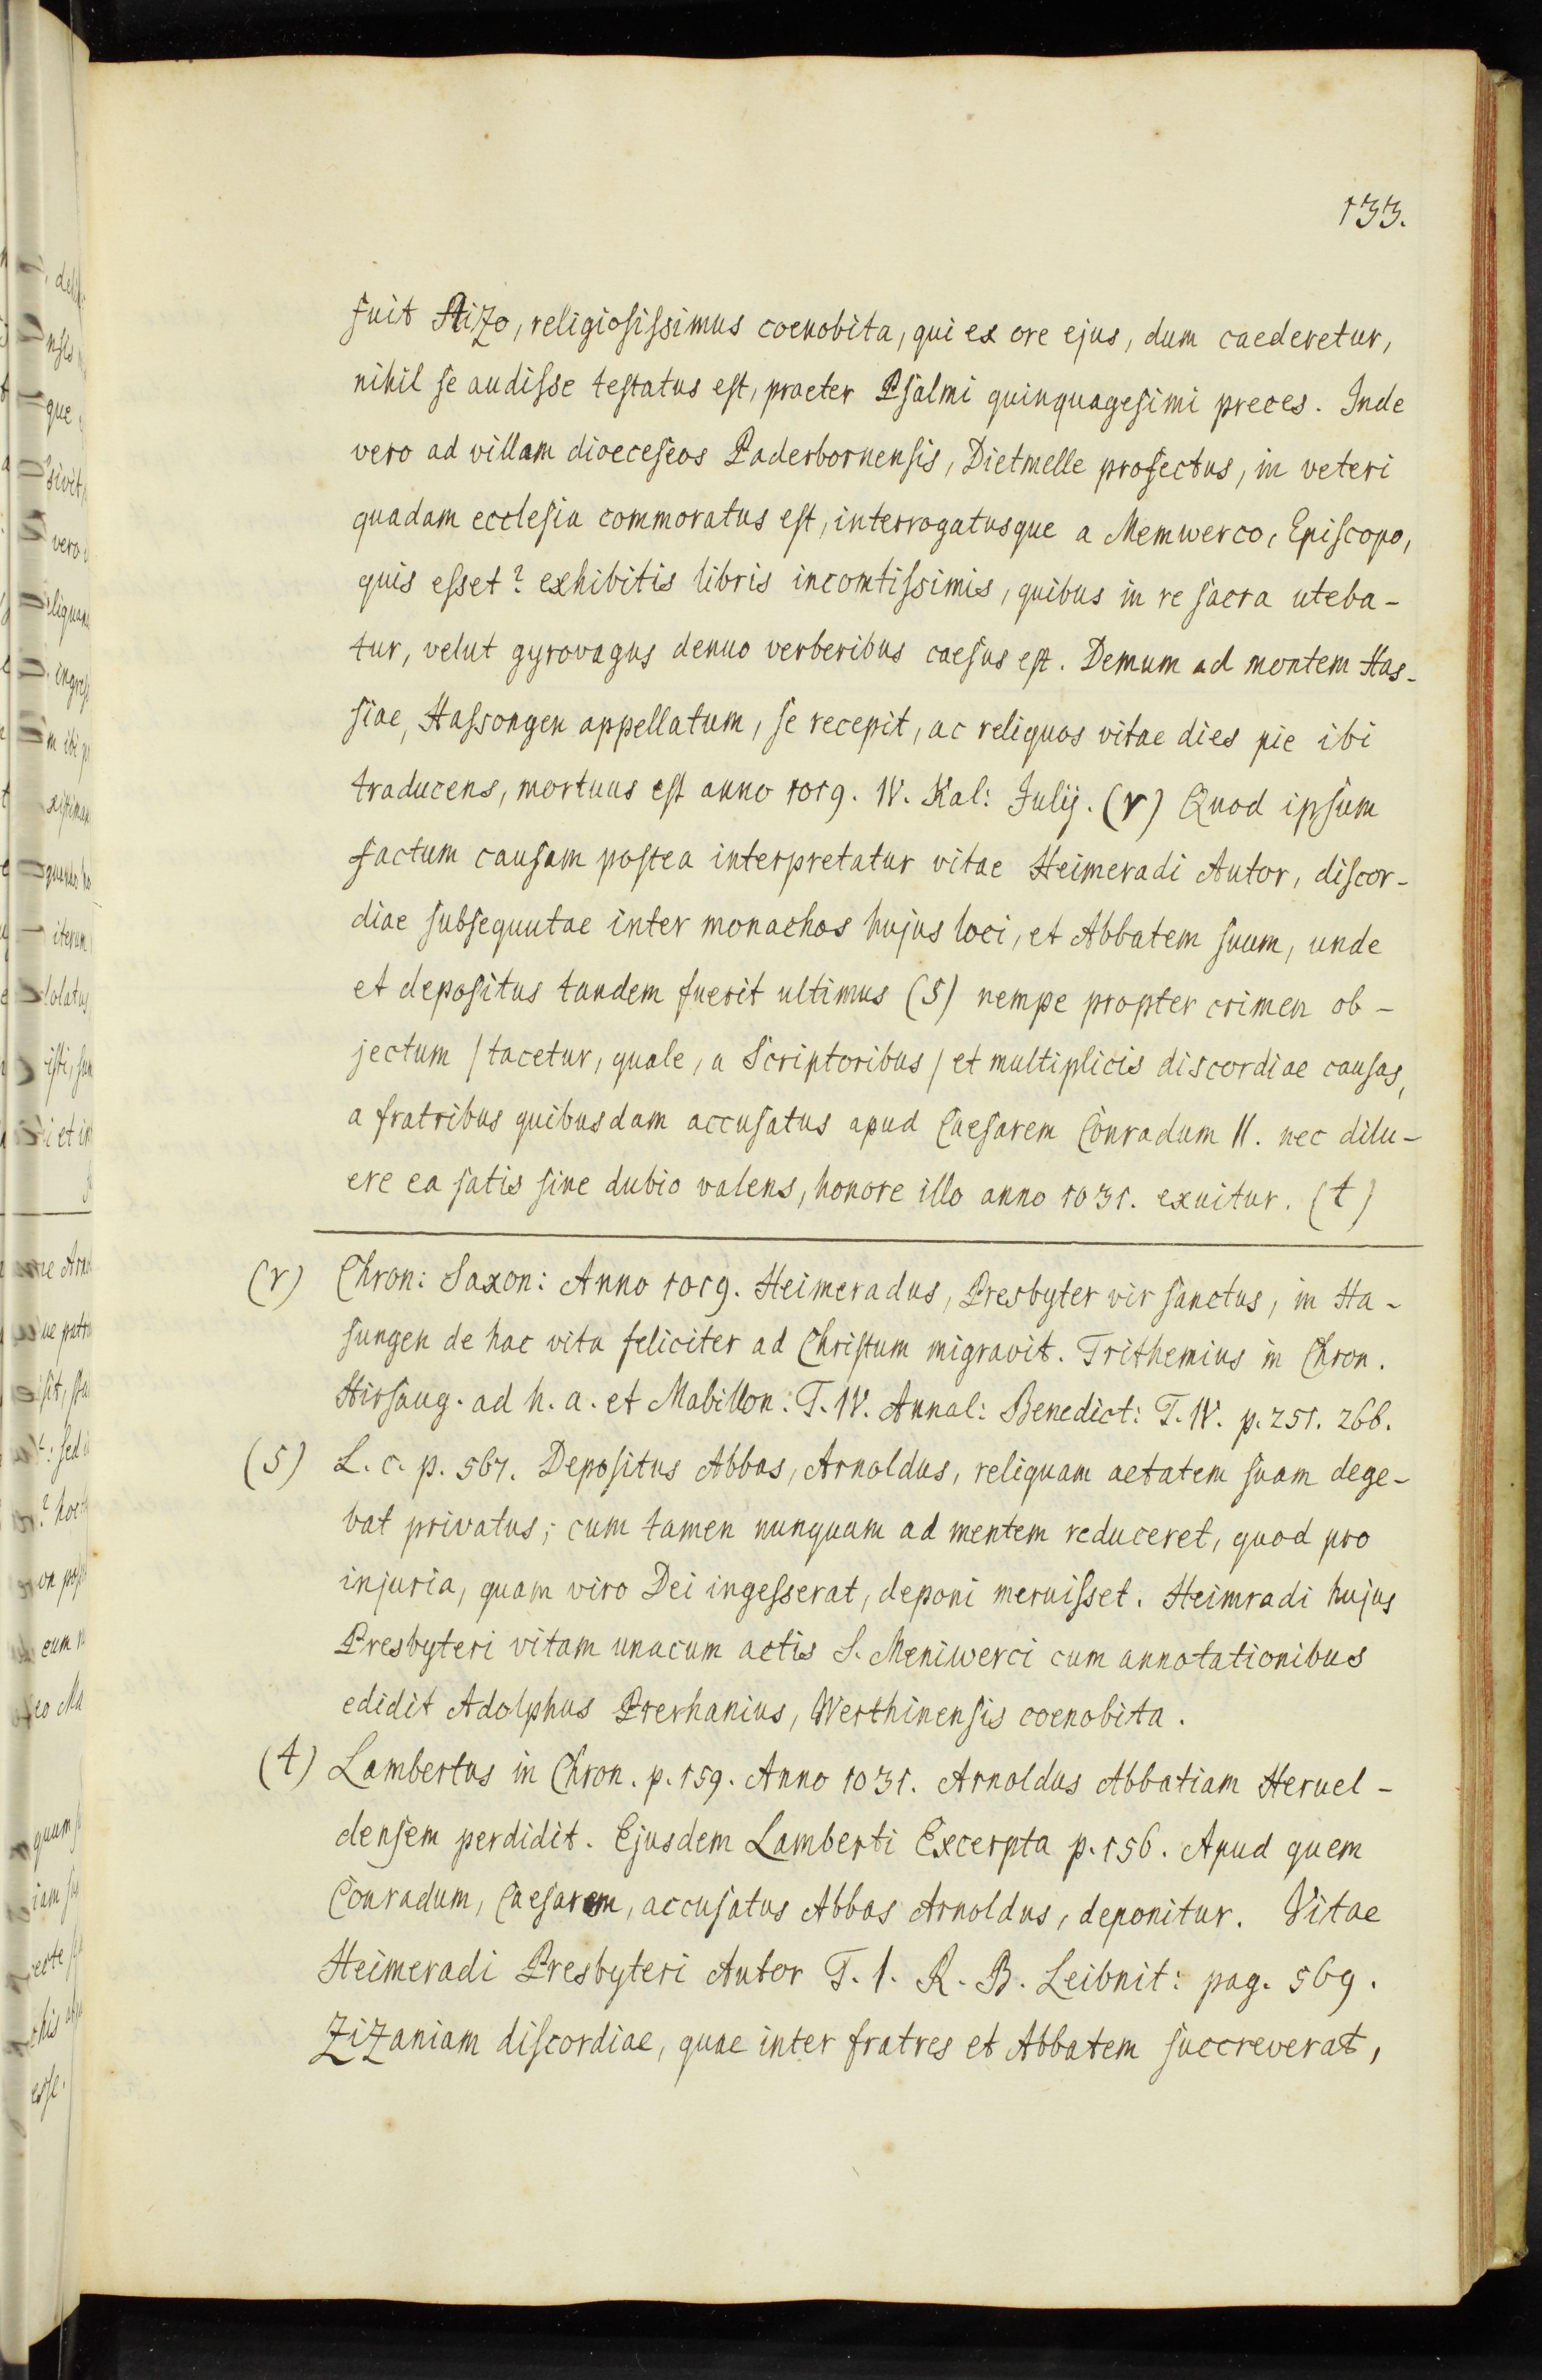 133.
fuit Hizo, religiosissimus coenobita, qui ex ore ejus, dum caederetur,
nihil se audisse testatus est, praeter Psalmi quinquagesimi preces. Inde
vero ad villam dioeceseos Paderbornensis, Dietmelle profectus, in veteri
quadam ecclesia commoratus est, interrogatusque a Memwerco, Episcopo,
quis esset? exhibitis libris incomtissimis, quibus in re sacra uteba-
tur, velut gyrovagus denuo verberibus caesus est. Demum ad montem Has-
siae, Hassongen appellatum, se recepit, ac reliquos vitae dies pie ibi
traducens, mortuus est anno 1019. IV. Kal: Julij. (r) Quod ipsum
factum causam postea interpretatur vitae Heimeradi Autor, discor-
diae subsequutae inter monachos hujus loci, et Abbatem suum, unde
et depositus tandem fuerit ultimus (s) nempe propter crimen ob-
jectum / tacetur, quale, a Scriptoribus / et multiplicis discordiae causas,
a fratribus quibusdam accusatus apud Caesarem Conradum II. nec dilu-
ere ea satis sine dubio valens, honore illo anno 1031. exuitur. (t)
(r) Chron: Saxon: Anno 1019. Heimeradus, Presbyter vir sanctus, in Ha-
sungen de hac vita feliciter ad Christum migravit. Trithemius in Chron.
Hirsaug. ad h. a. et Mabillon. T. IV. Annal: Benedict: T. IV. p. 251. 266.
(s) L. c. p. 567. Depositus Abbas, Arnoldus, reliquam aetatem suam dege-
bat privatus; cum tamen nunquam ad mentem reduceret, quod pro
injuria, quam viro Dei ingesserat, deponi meruisset. Heimradi hujus
Presbyteri vitam unacum actis S. Meniwerci cum annotationibus
edidit Adolphus Prerhanius, Werthinensis coenobita.
(t) Lambertus in Chron. p. 159. Anno 1031. Arnoldus Abbatiam Heruel-
densem perdidit. Ejusdem Lamberti Excerpta p. 156. Apud quem
Conradum, Caesarem, accusatus Abbas Arnoldus, deponitur. Vitae
Heimeradi Presbyteri Autor T. I. R. B. Leibnit: pag. 569.
Zizaniam discordiae, quae inter fratres et Abbatem succreverat,